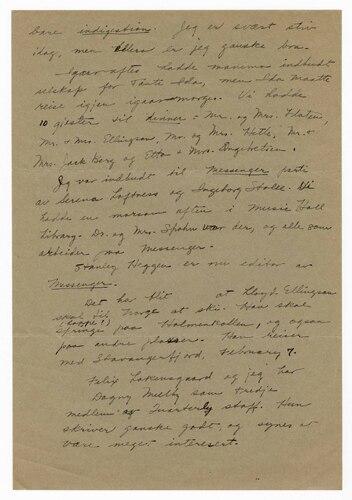 bare indigestion. Jeg er svært stiv
idag, men ellers er jeg ganske bra.
Igaar aftes hadde mamma indbudt
selskap for Tante Ida, men Ida maatte
reise igjen igaarmorges. Vi hadde
10 gjester til dinner - Mr. og Mrs. Flaten,
Mr. + Mrs. Ellingson, Mr. og Mrs. Hetle, Mr. +
Mrs. Jack Berg og Etta + Mrs. Engebretson.
Jeg var indbudt til Messenger party
av Serena Loftness og Ingeborg Stolee. De
hadde en morsom aften i Music Hall
Library. Dr. og Mrs. Spohn war der, og alle som
arbeider paa Messenger.
Stanley Heggen er nu editor av
Messenger.
Det har blit at Lloyd Ellingson
skal til Norge at ski. Han skal
(hoppe?)
springe paa Holmenkollen, og ogsaa
paa andre plasser. Han reiser
med Stavangerfjord, February 7.
Felix og jeg har
Dagny Melby som tredje
medlem av Quarterly staff. Hun
skriver ganske godt og synes at
være meget interesert.